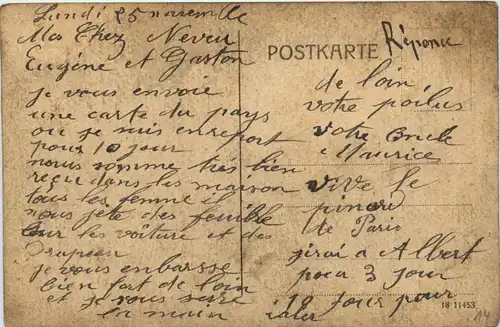 Lundi 25 novemble
Mes Chez Neveu
Eugéne et Gaston
je vous envoie
une carte du pays
ou je suis en repot
pour 10 jour
nous somme très bien
reçu dans les maison
tous les femme
nous jète des feuille
sur les voiture et des
Drapeau
je vous enbarsse
bien fort de loin
et je vous serre
la main
POSTKARTE
Réponce
de loin
votre poilus
votre Oncle
Maurice
vive le
pinard
de Paris
jirai à Albert
poca 3 jour
18 jour pour
aler
18 11453
14